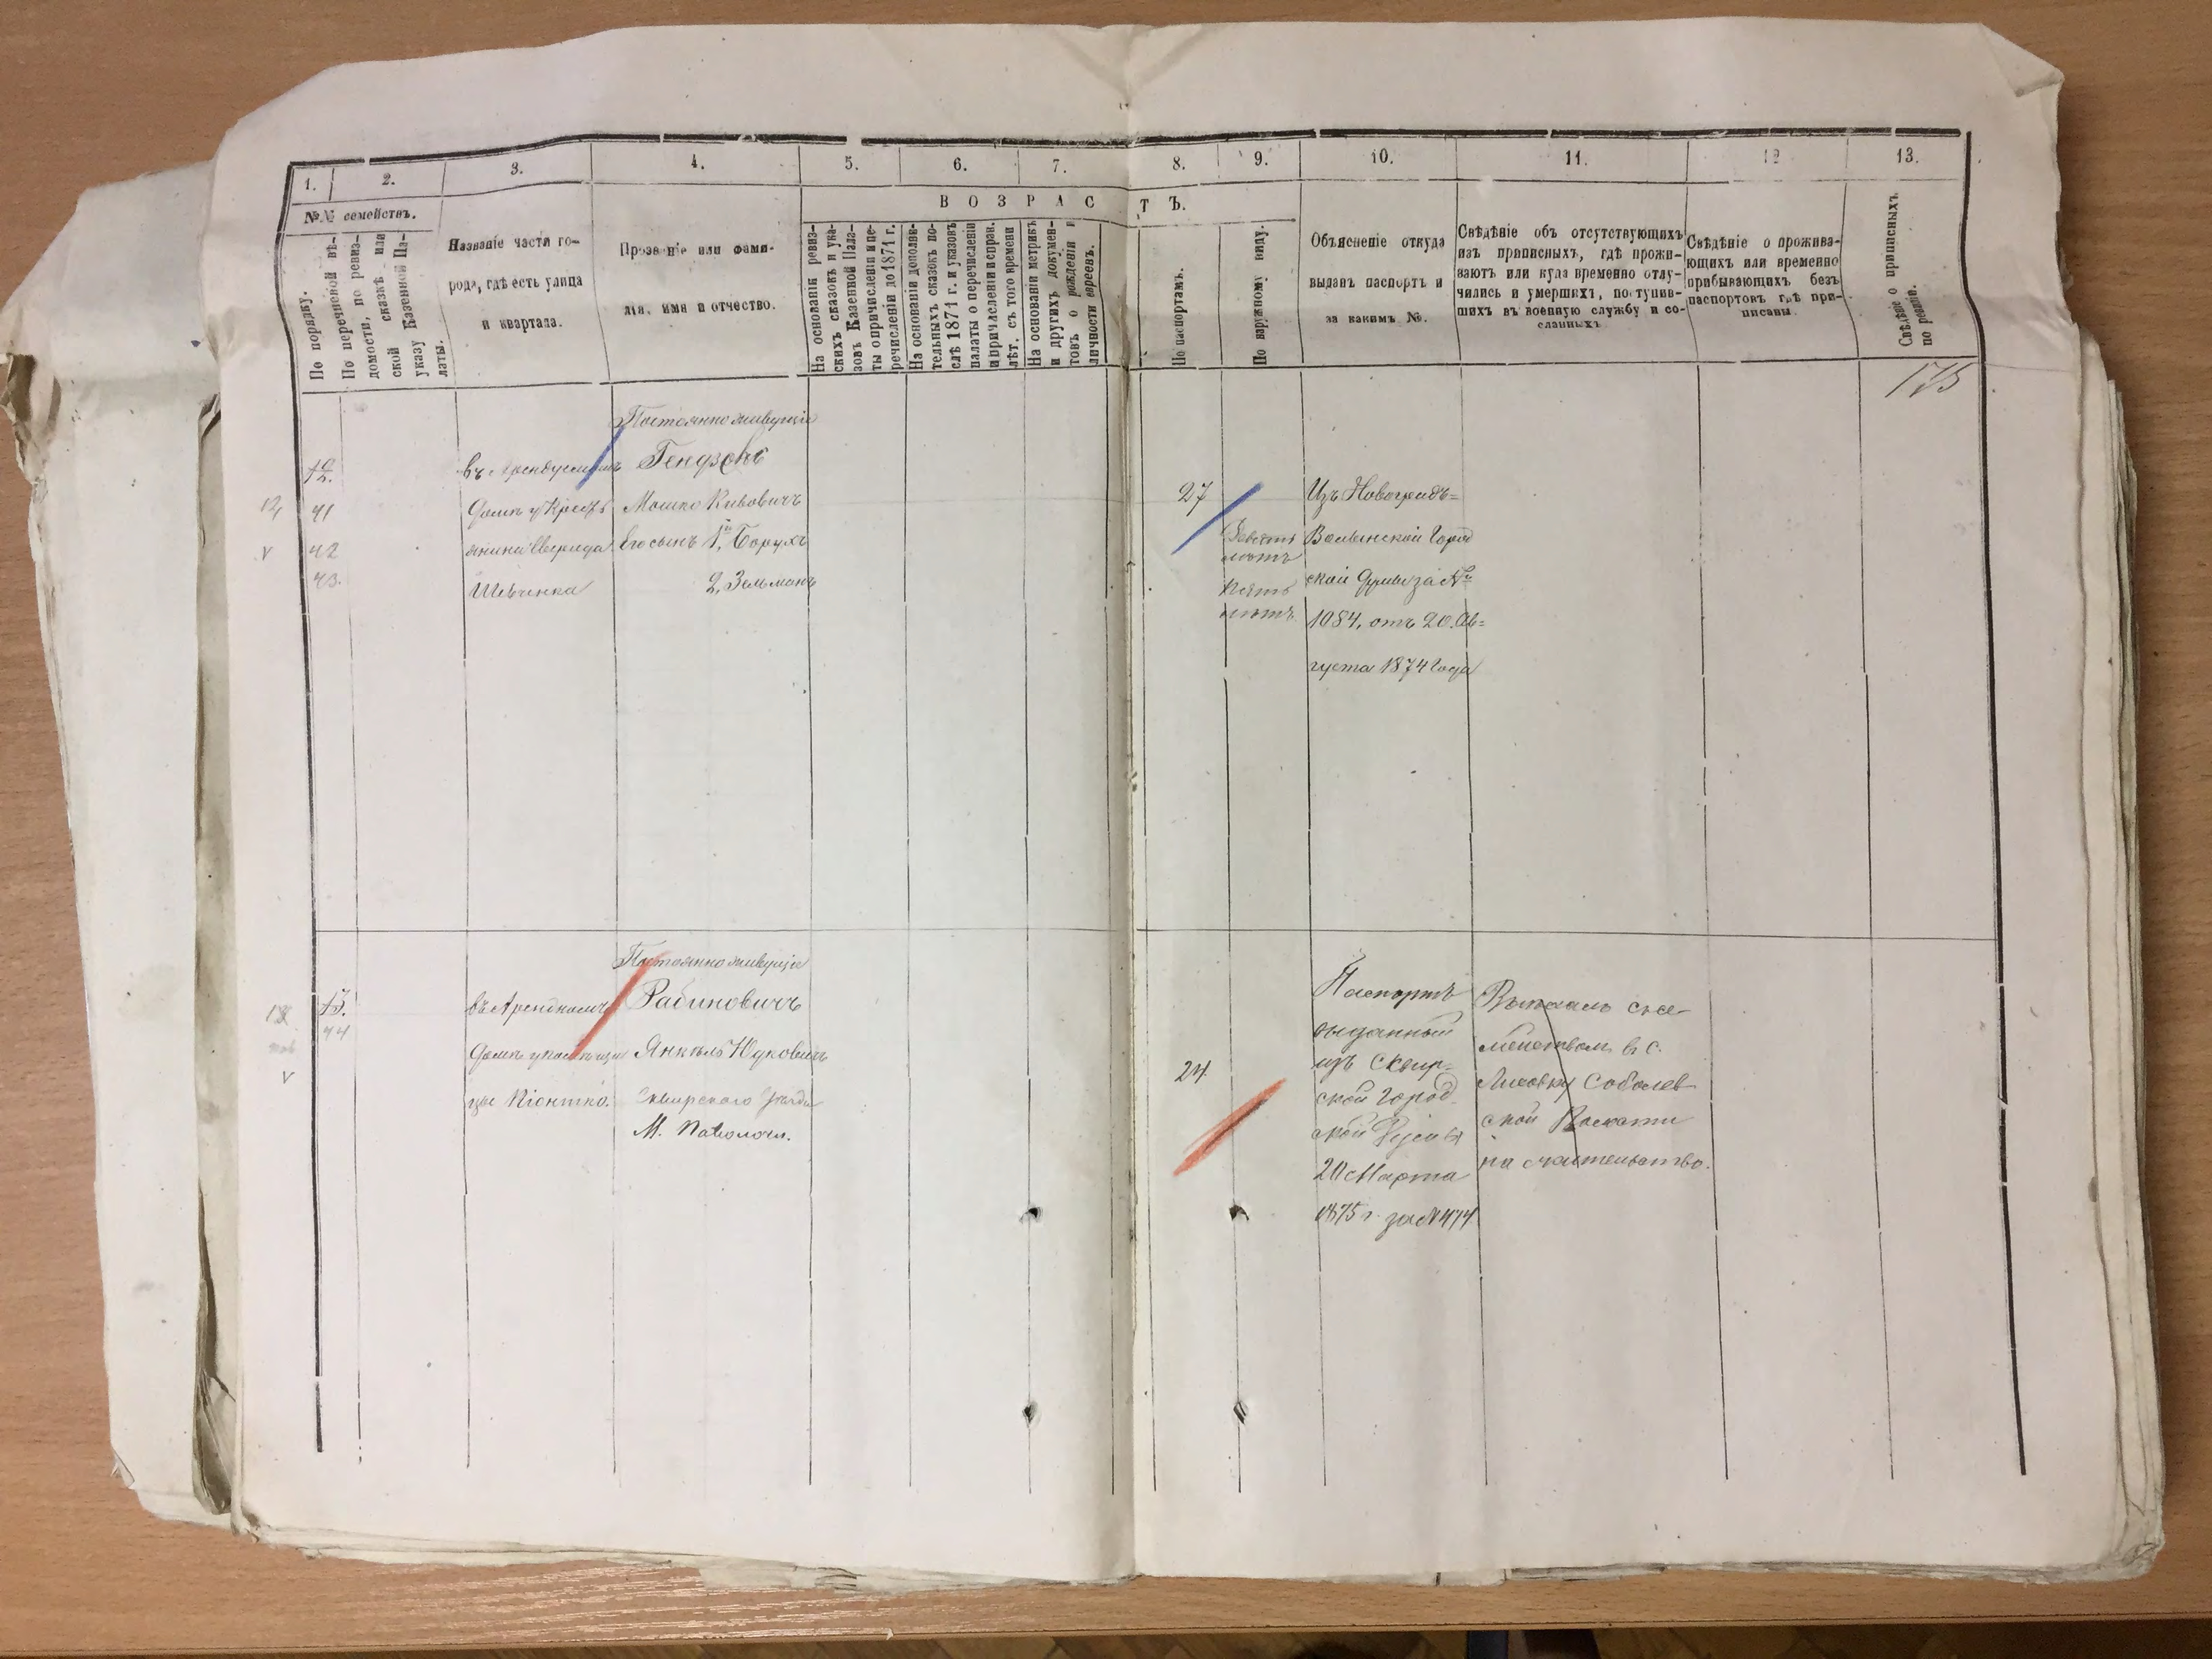 1.
2.
3.
4.
5.
6.
7.
8.
9.
10.
11.
12
13.
№№ семействъ.
По порядку.
По перечневой вѣ-
домости, по ревиз-
ской сказкѣ или
указу Казенной Па-
латы.
Названіе части го-
рода, гдѣ есть улица
и квартала.
Прозваніе или фами-
лія, имя и отчество.
ВОЗРАСТЪ.
На основаніи ревиз-
скихъ сказокъ и ука-
зовъ Казенной Пала-
ты о причисленіи и пе-
речисленіи до 1871 г.
На основаніи дополни-
тельныхъ сказокъ по-
слѣ 1871 г. и указовъ
палаты о перечисленіи
и причисленіи и справ.
лѣт. съ того времени
На основаніи метрикъ
и другихъ докумен-
товъ о рожденіи и
личности евреевъ.
По паспортамъ.
По наружному виду.
Объясненіе откуда
выданъ паспортъ и
за какимъ №.
Свѣдѣніе объ отсутствующихъ
изъ приписныхъ, гдѣ прожи-
ваютъ или куда временно отлу-
чились и умершихъ, поступив-
шихъ въ военную службу и со-
сланныхъ
Свѣдѣніе о прожива-
ющихъ или временно
прибывающихъ безъ
паспортовъ гдѣ при-
писаны.
Свѣдѣніе о приписныхъ
по ревизіи.
175
Постоянно живущіе
12.
въ
Гендзель
12
41
домѣ у Кресть
Мошко Кивовичъ
27
Изъ Новоградъ=
v
42
янина Свирида
Его сынъ 1й, Борухъ
Девять
лѣтъ
Волынской Город
43.
Шевченка
2, Зельманъ
Пять
лѣтъ
ской Думы за №
1084, отъ 20. Ав=
густа 1874 года
Постоянно живущіе
13
13.
44
въ Арендномъ
Рабиновичъ
v
домѣ у помѣщи
Янкель Юдковичъ
цы
Сквирского уѣзда
М. Паволочи.
24
Паспортъ
выданный
изъ Сквир=
ской Город
ской Думы
20 Марта
1875 г. за № 474
Выѣхалъ съ се-
мействомъ въ с.
Лисовку Соболев-
ской Волости
на жительство.